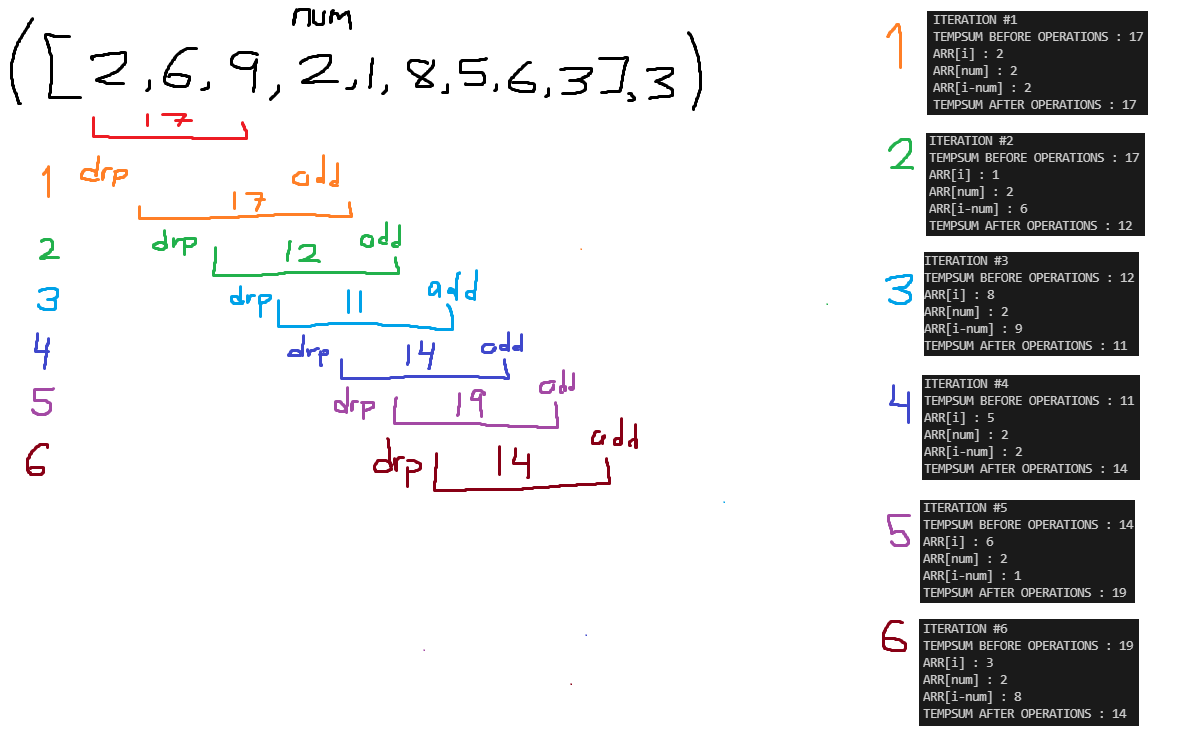 num
([2,6,9,2,1,8,5,6,3],3)
17
1 drp 17 add
2 drp 12 add
3 drp 11 add
4 drp 14 add
5 drp 19 add
6 drp 14 add
1
ITERATION #1
TEMPSUM BEFORE OPERATIONS : 17
ARR[i] : 2
ARR[num] : 2
ARR[i-num] : 2
TEMPSUM AFTER OPERATIONS : 17
2
ITERATION #2
TEMPSUM BEFORE OPERATIONS : 17
ARR[i] : 1
ARR[num] : 2
ARR[i-num] : 6
TEMPSUM AFTER OPERATIONS : 12
3
ITERATION #3
TEMPSUM BEFORE OPERATIONS : 12
ARR[i] : 8
ARR[num] : 2
ARR[i-num] : 9
TEMPSUM AFTER OPERATIONS : 11
4
ITERATION #4
TEMPSUM BEFORE OPERATIONS : 11
ARR[i] : 5
ARR[num] : 2
ARR[i-num] : 2
TEMPSUM AFTER OPERATIONS : 14
5
ITERATION #5
TEMPSUM BEFORE OPERATIONS : 14
ARR[i] : 6
ARR[num] : 2
ARR[i-num] : 1
TEMPSUM AFTER OPERATIONS : 19
6
ITERATION #6
TEMPSUM BEFORE OPERATIONS : 19
ARR[i] : 3
ARR[num] : 2
ARR[i-num] : 8
TEMPSUM AFTER OPERATIONS : 14